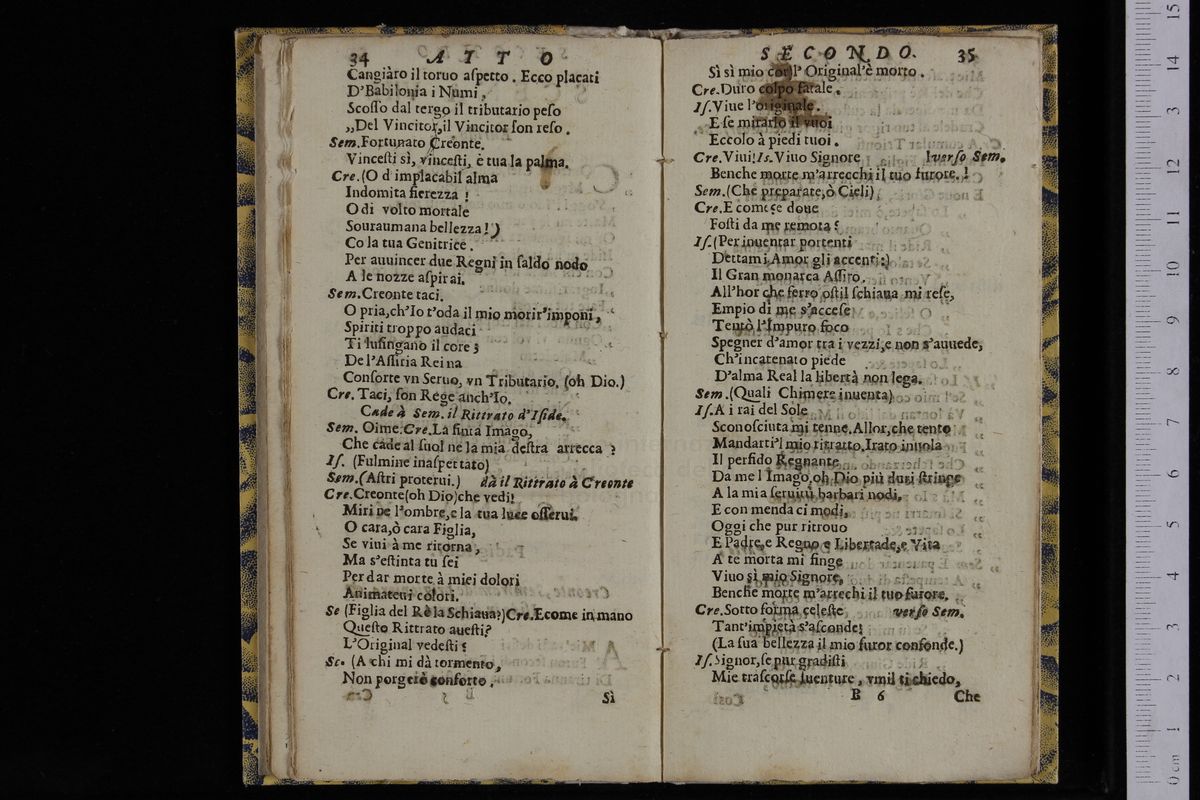 34 A T T O
Cangiàro il toruo aſpetto. Ecco placati
D'Babilonia i Numi,
Scoſſo dal tergo il tributario peſo
„Del Vincitor,il Vincitor ſon reſo.
Sem.Fortunato Creonte.
Vinceſti sì, vinceſti, è tua la palma.
Cre.(O d implacabil alma
Indomita fierezza !
O di volto mortale
Souraumana bellezza!)
Co la tua Genitrice.
Per auuincer due Regni in ſaldo nodo
A le nozze aſpirai.
Sem.Creonte taci.
O pria,ch'Io t'oda il mio morir'imponi,
Spiriti troppo audaci
Ti luſingano il core;
De l'Aſſiria Reina
Conſorte vn Seruo, vn Tributario, (oh Dio.)
Cre. Taci, ſon Rege anch'Io.
Cade à Sem. il Rittrato d'Iſide.
Sem. Oime.Cre.La finta Imago,
Che cade al ſuol ne la mia deſtra arrecca ?
Iſ. (Fulmine inaſpettato)
Sem.(Aſtri proterui.) dà il Rittrato à Creonte
Cre.Creonte(oh Dio)che vedi!
Miri ne l'ombre,e la tua luce oſſerui.
O cara,ò cara Figlia,
Se viui à me ritorna,
Ma s'eſtinta tu ſei
Per dar morte à miei dolori
Animateui colori.
Se (Figlia del Rè la Schiaua?)Cre.Ecome in mano
Queſto Rittrato aueſti?
L'Original vedeſti?
Se. (A chi mi dà tormento,
Non porgerò conforto.
Sì
SECONDO. 35
Sì sì mio cor l' Original'è morto.
Cre.Duro colpo fatale.
Iſ.Viue l'originale.
E ſe mirarlo il vuoi
Eccolo à piedi tuoi.
Cre.Viui!Is.Viuo Signore verſo Sem.
Benche morte m'arrecchi il tuo furore.
Sem.(Che preparate,ò Cieli)
Cre.E come e doue
Foſti da me remota?
Iſ.(Per inuentar portenti
Dettami,Amor gli accenti:)
Il Gran monarca Aſſiro.
All'hor che ferro oſtil ſchiaua mi reſe,
Empio di me s'acceſe
Tentò l'Impuro foco
Spegner d'amor tra i vezzi,e non s'auuede,
Ch'incatenato piede
D'alma Real la libertà non lega.
Sem.(Quali Chimere inuenta)
Iſ.A i rai del Sole
Sconoſciuta mi tenne.Allor,che tento
Mandarti'l mio ritratto.Irato inuola
Il perfido Regnante
Da me l Imago,oh Dio più duri ſtringe
A la mia ſeruitù barbari nodi,
E con menda ci modi,
Oggi che pur ritrouo
E Padre,e Regno e Libertade,e Vita
A te morta mi finge
Viuo sì mio Signore,
Benche morte m'arrechi il tuo furore.
Cre.Sotto forma celeſte verſo Sem.
Tant'impietà s'aſconde!
(La ſua bellezza il mio furor confonde.)
Iſ.Signor,ſe pur gradiſti
Mie traſcorſe ſuenture, vmil ti chiedo,
B 6 Che